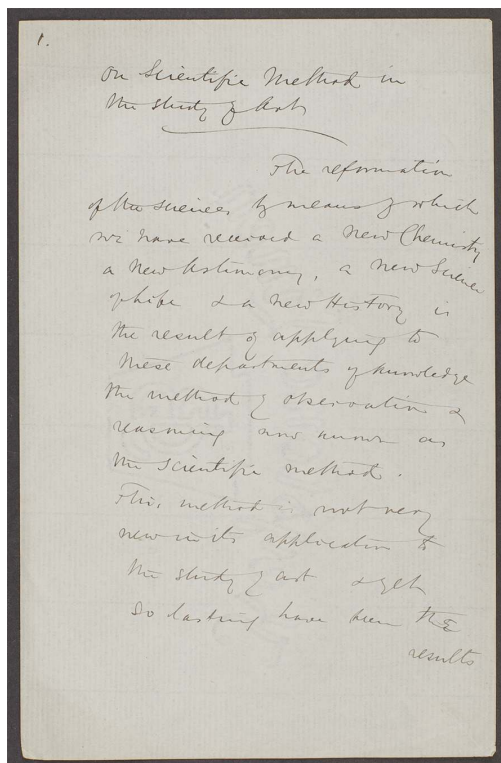 1.
On Scientific Method in
the study of Art
The reformation
of the sciences by means of which
we have received a new Chemistry
a new Astronomy, a new Science
of life & a new History is
the result of applying to
these departments of knowledge
the method of observation &
reasoning now known as
the scientific method.
This method is not very
new in its application to
the study of art & yet
so lasting have been the
results